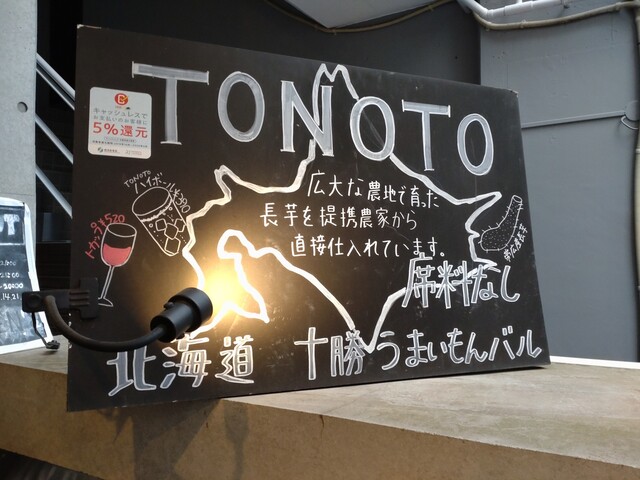 TONOTO
キャッシュレスで
お支払いのお客様に
5%還元
TONOTO
ハイボール
トカップ ¥520
広大な農地で育った
長芋を提携農家から
直接仕入れています。
席料なし
北海道 十勝うまいもんバル